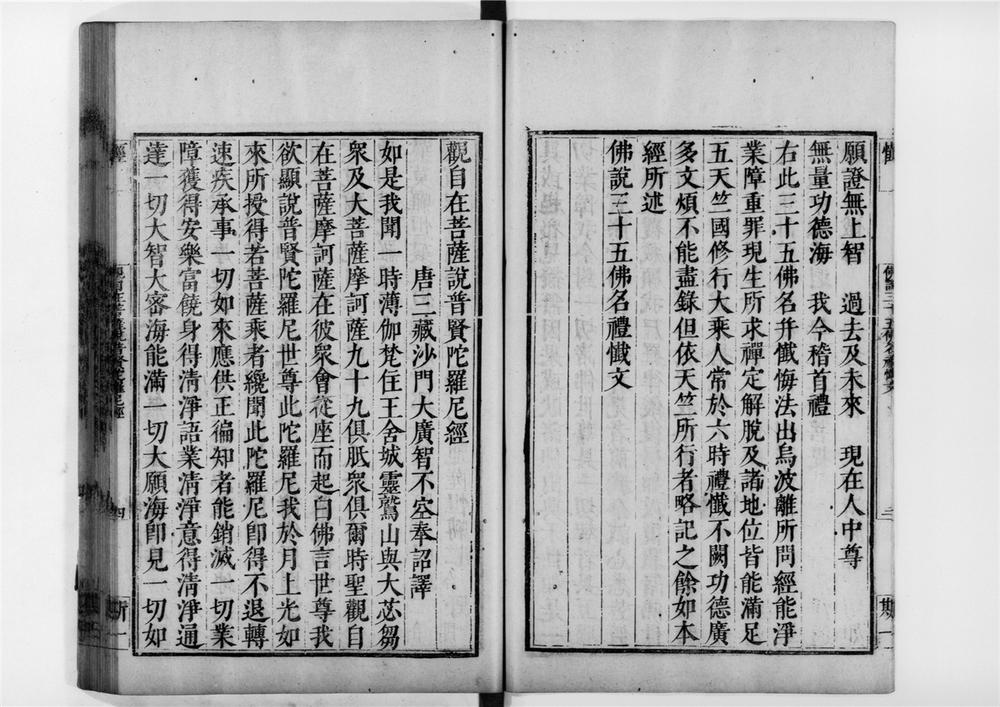 願證無上智　過去及未來　現在人中尊
無量功德海　我今稽首禮
右此三十五佛名并懺悔法出烏波離所問經能淨
業障重罪現生所求禪定解脫及諸地位皆能滿足
五天竺國修行大乘人常於六時禮懺不闕功德廣
多文煩不能盡錄但依天竺所行者略記之餘如本
經所述
佛說三十五佛名禮懺文
觀自在菩薩說普賢陀羅尼經
唐三藏沙門大廣智不空奉詔譯
如是我聞一時薄伽梵住王舍城靈鷲山與大苾芻
衆及大菩薩摩訶薩九十九俱胝衆俱爾時聖觀自
在菩薩摩訶薩在彼衆會從座而起白佛言世尊我
欲顯說普賢陀羅尼世尊此陀羅尼我於月上光如
來所授得若菩薩乘者纔聞此陀羅尼卽得不退轉
速疾承事一切如來應供正徧知者能銷滅一切業
障獲得安樂富饒身得清淨語業清淨意得清淨通
達一切大智大密海能滿一切大願海卽見一切如